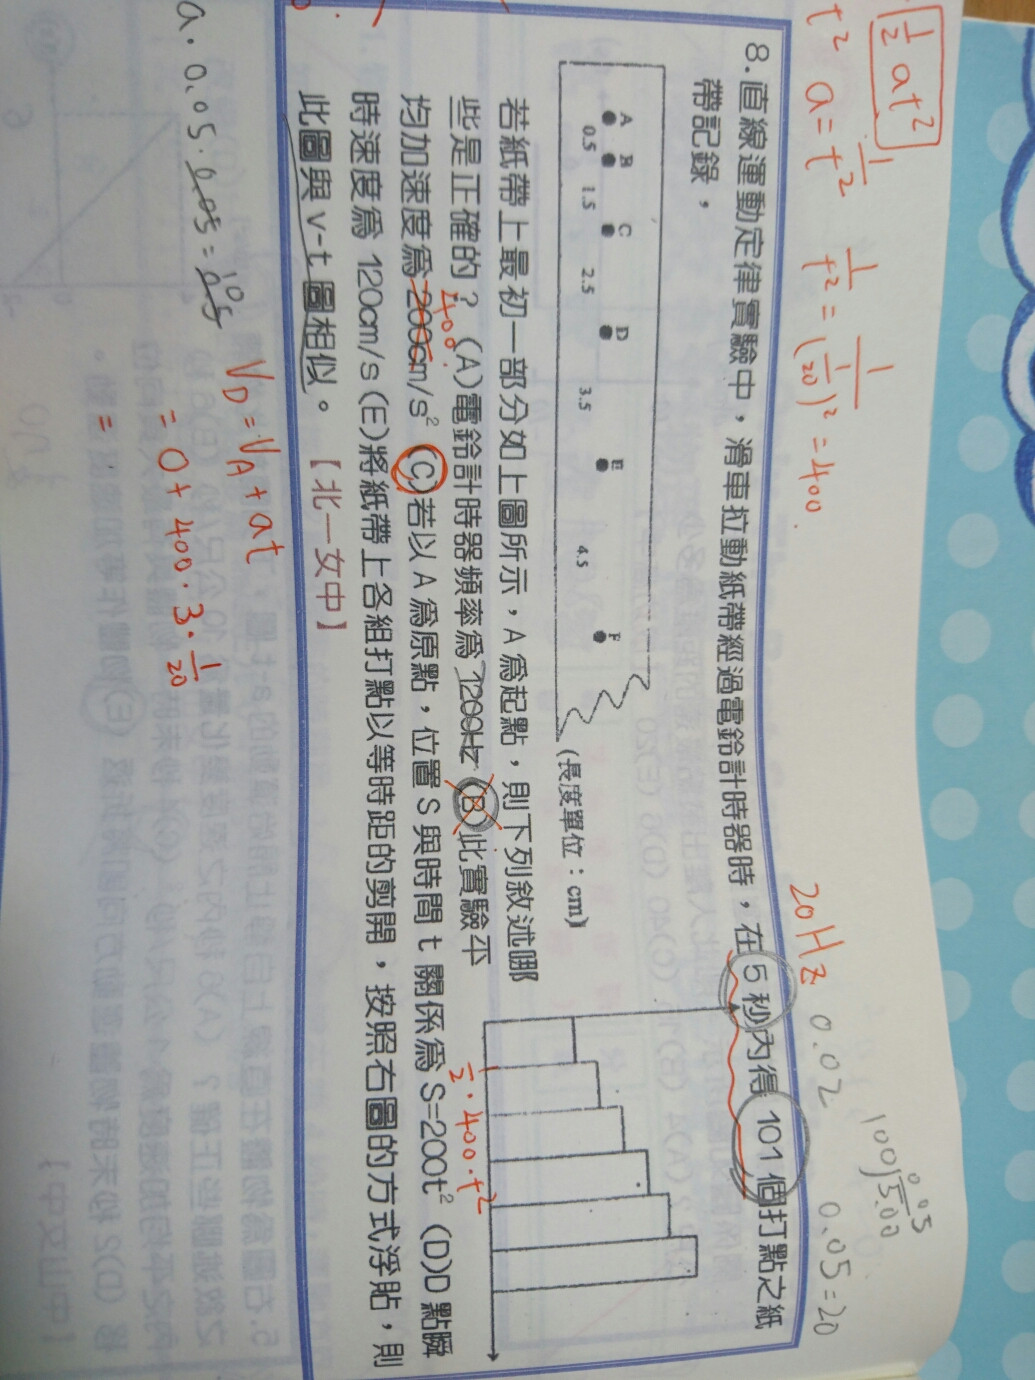 8.直線運動定律實驗中，滑車拉動紙帶經過電鈴計時器時，在5秒內得101個打點之紙
帶記錄，
A B C D E F
0.5 1.5 2.5 3.5 4.5
(長度單位：cm)
若紙帶上最初一部分如上圖所示，A為起點，則下列敘述哪
些是正確的？(A)電鈴計時器頻率為120Hz (B)此實驗平
均加速度為200cm/s² (C)若以A為原點，位置S與時間t關係為S=200t² (D)D點瞬
時速度為120cm/s (E)將紙帶上各組打點以等時距的剪開，按照右圖的方式浮貼，則
此圖與v-t圖相似。 【北一女中】
½at²
t² a=
1/t²
1/t² = 1/(1/20)² = 400
20Hz
0.02
0.05=20
0.05
100)5.00
400
½·400·t²
a·0.05·0.05=
V_D=V_A+at
=0+400·3·1/20
=